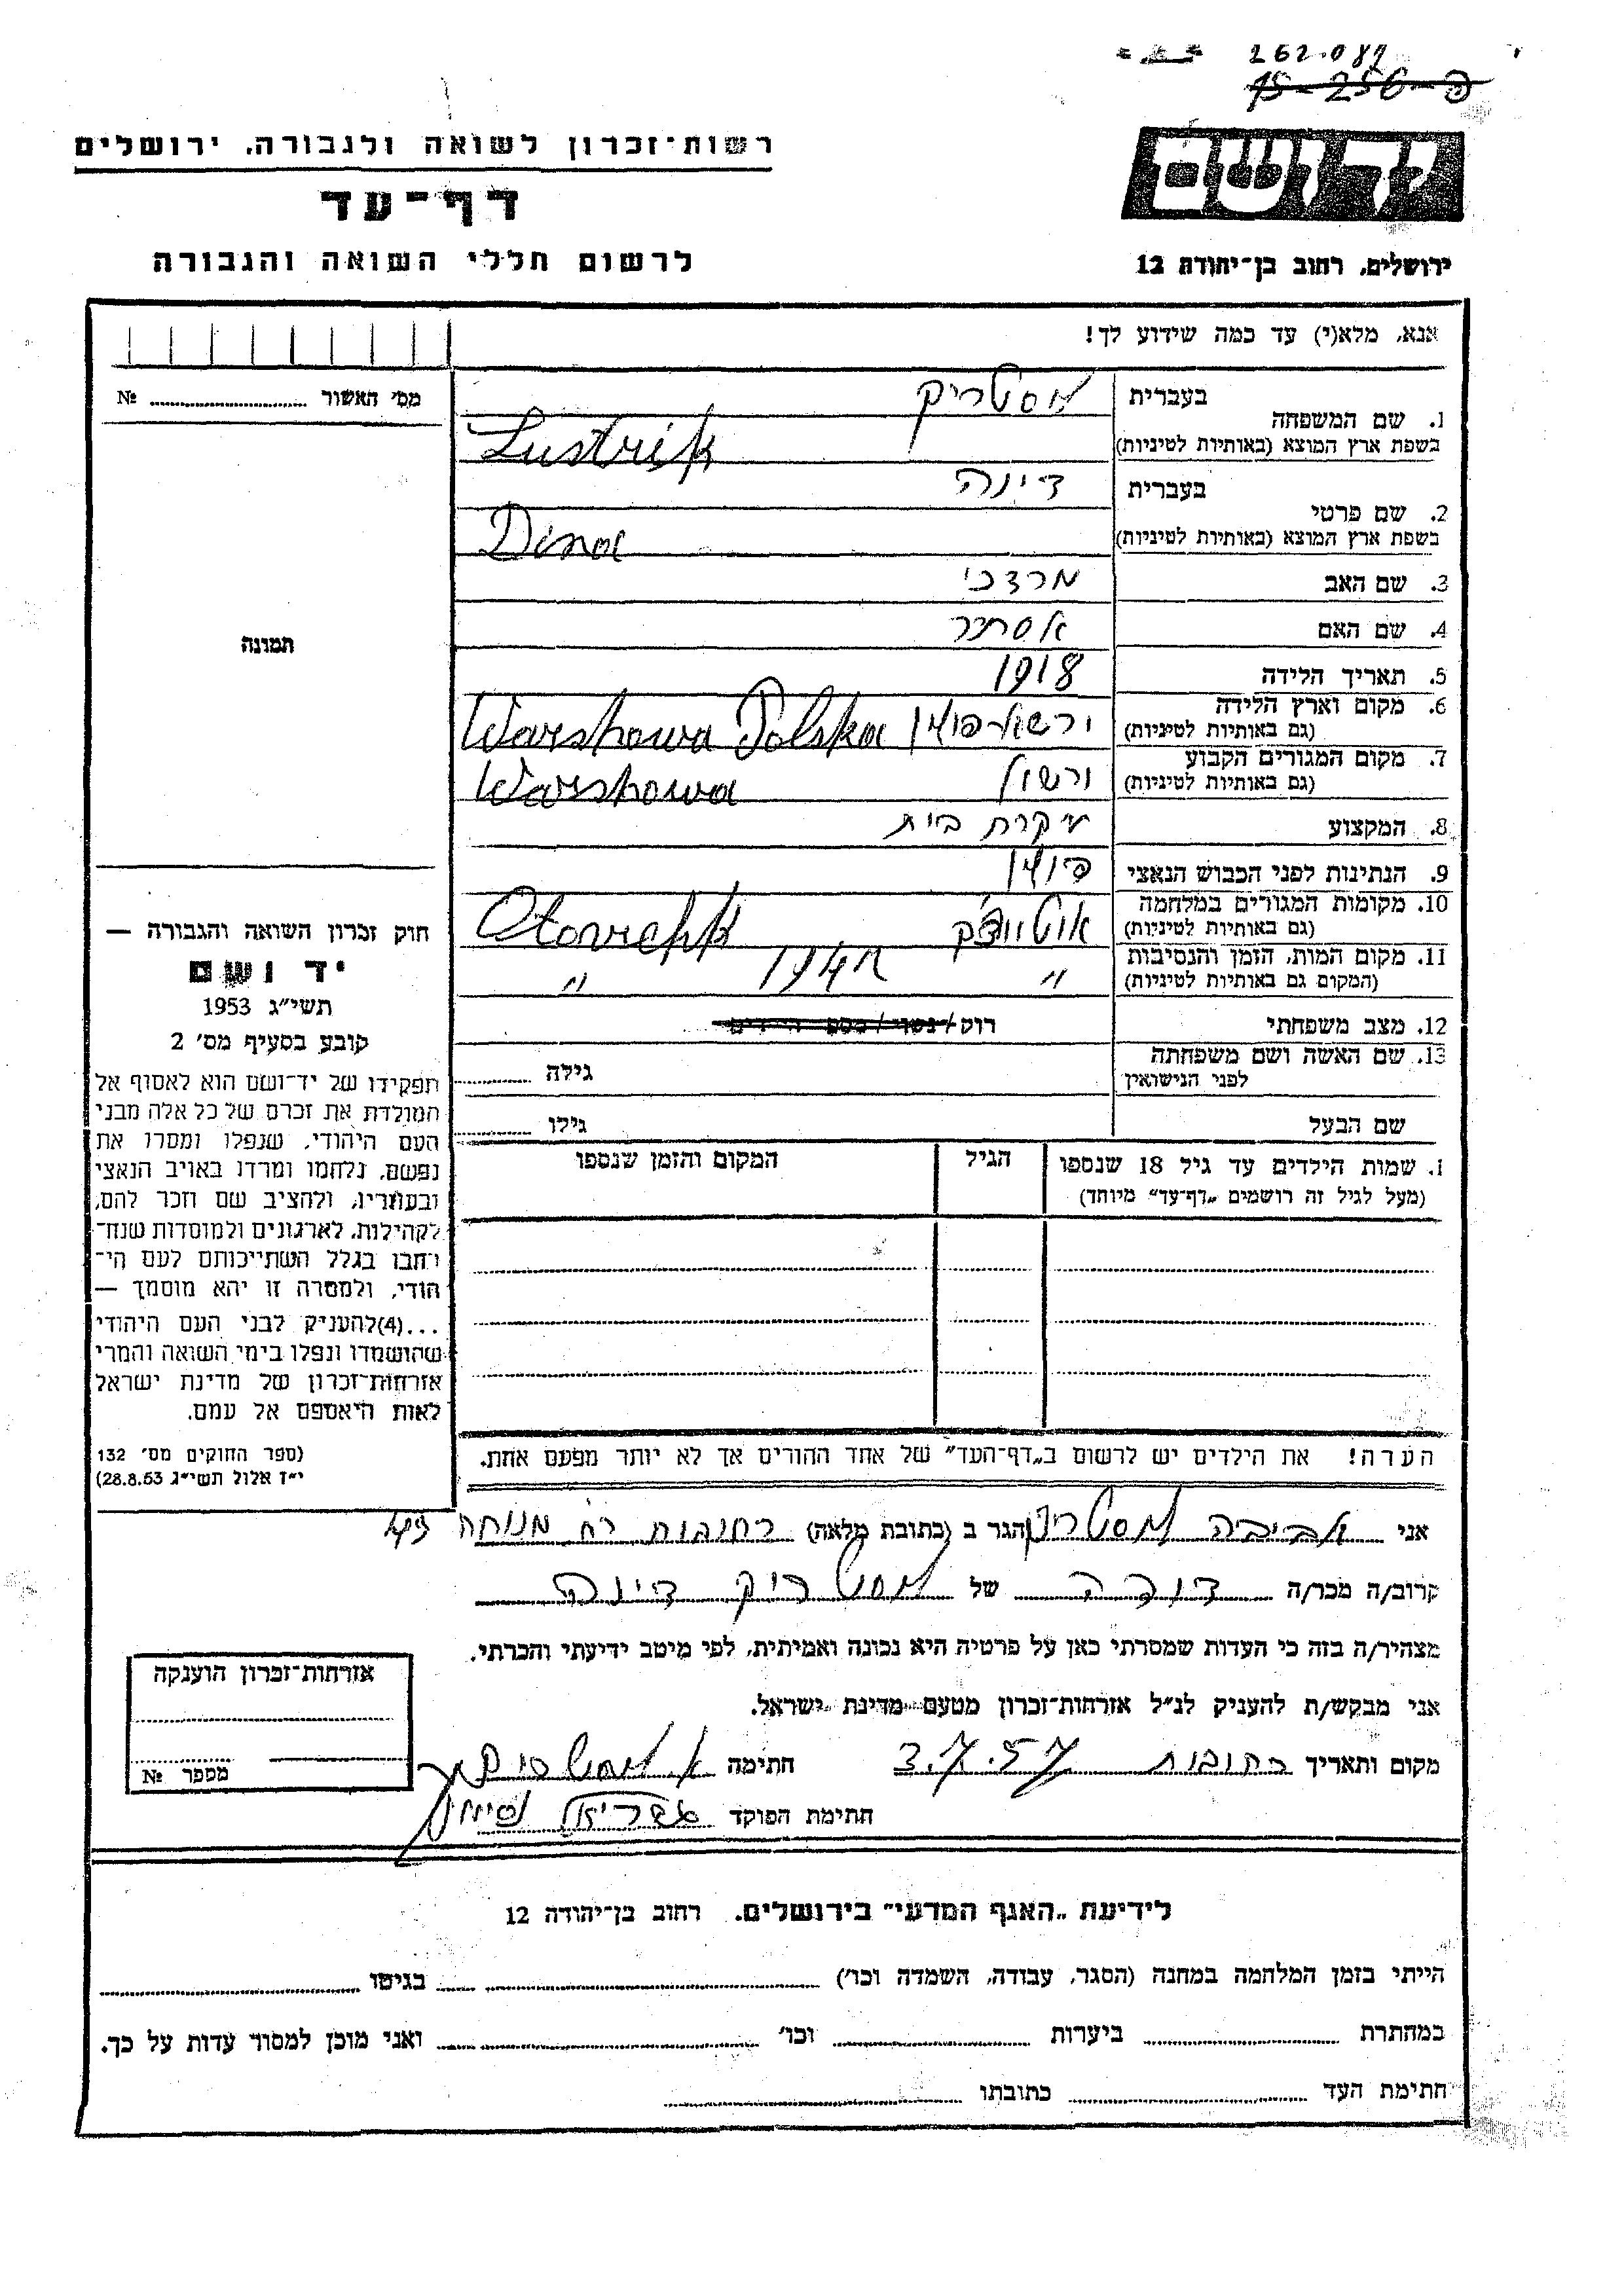 262.087
15-256-פ
יד ושם
ירושלים, רחוב בן־יהודה 12
רשות־זכרון לשואה ולגבורה, ירושלים
דף־עד
לרשום חללי השואה והגבורה
אנא, מלא(י) עד כמה שידוע לך!
מס׳ האשור № 
1. שם המשפחה
בעברית לוסטריק
בשפת ארץ המוצא (באותיות לטיניות) Lustrik
2. שם פרטי
בעברית דינה
בשפת ארץ המוצא (באותיות לטיניות) Dina
3. שם האב מרדכי
4. שם האם אסתר
5. תאריך הלידה 1918
6. מקום וארץ הלידה ורשא־פולין Warshowa Polska
(גם באותיות לטיניות)
7. מקום המגורים הקבוע ורשא Warshowa
(גם באותיות לטיניות)
8. המקצוע עקרת בית
9. הנתינות לפני הכבוש הנאצי פולין
10. מקומות המגורים במלחמה אוטווצק
(גם באותיות לטיניות)
11. מקום המות, הזמן והנסיבות " "
(המקום גם באותיות לטיניות)
12. מצב משפחתי רוק/נשוי/מספר הילדים
13. שם האשה ושם משפחתה
לפני הנישואין
גילה
שם הבעל
גילו
1. שמות הילדים עד גיל 18 שנספו
(מעל לגיל זה רושמים „דף־עד״ מיוחד)
הגיל
המקום והזמן שנספו
הערה! את הילדים יש לרשום ב„דף־העד״ של אחד ההורים אך לא יותר מפעם אחת.
תמונה
חוק זכרון השואה והגבורה —
יד ושם
תשי״ג 1953
קובע בסעיף מס׳ 2
תפקידו של יד־ושם הוא לאסוף אל
המולדת את זכרם של כל אלה מבני
העם היהודי, שנפלו ומסרו את
נפשם, נלחמו ומרדו באויב הנאצי
ובעוזריו, ולהציב שם וזכר להם,
לקהילות, לארגונים ולמוסדות שנח־
רבו בגלל השתייכותם לעם הי־
הודי, ולמטרה זו יהא מוסמך —
...(4)להעניק לבני העם היהודי
שהושמדו ונפלו בימי השואה והמרי
אזרחות־זכרון של מדינת ישראל
לאות היאספם אל עמם.
(ספר החוקים מס׳ 132
י״ז אלול תשי״ג 28.8.53)
אני אביבה לוסטריק הגר ב (כתובת מלאה) רחובות רח׳ מנוחה
קרוב/ה מכר/ה דודה של לוסטריק דינה
מצהיר/ה בזה כי העדות שמסרתי כאן על פרטיה היא נכונה ואמיתית, לפי מיטב ידיעתי והכרתי.
אני מבקש/ת להעניק לנ״ל אזרחות־זכרון מטעם מדינת ישראל.
מקום ותאריך רחובות 3.7.57 חתימה א. לוסטריק
חתימת הפוקד
אזרחות־זכרון הוענקה
מספר №
לידיעת „האגף המדעי״ בירושלים. רחוב בן־יהודה 12
הייתי בזמן המלחמה במחנה (הסגר, עבודה, השמדה וכו׳) בגיטו
במחתרת ביערות וכו׳ ואני מוכן למסור עדות על כך.
חתימת העד כתובתו